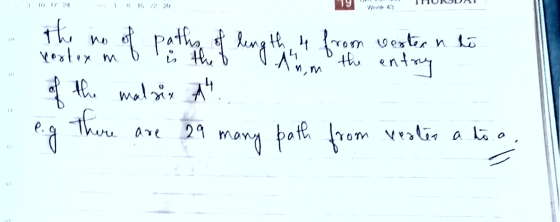 19
THURSDAY
The no of paths of length 4 from vertex n to
vertex m is the A⁴n,m the entry
of the matrix A⁴.
e.g There are 29 many path from vertex a to a.